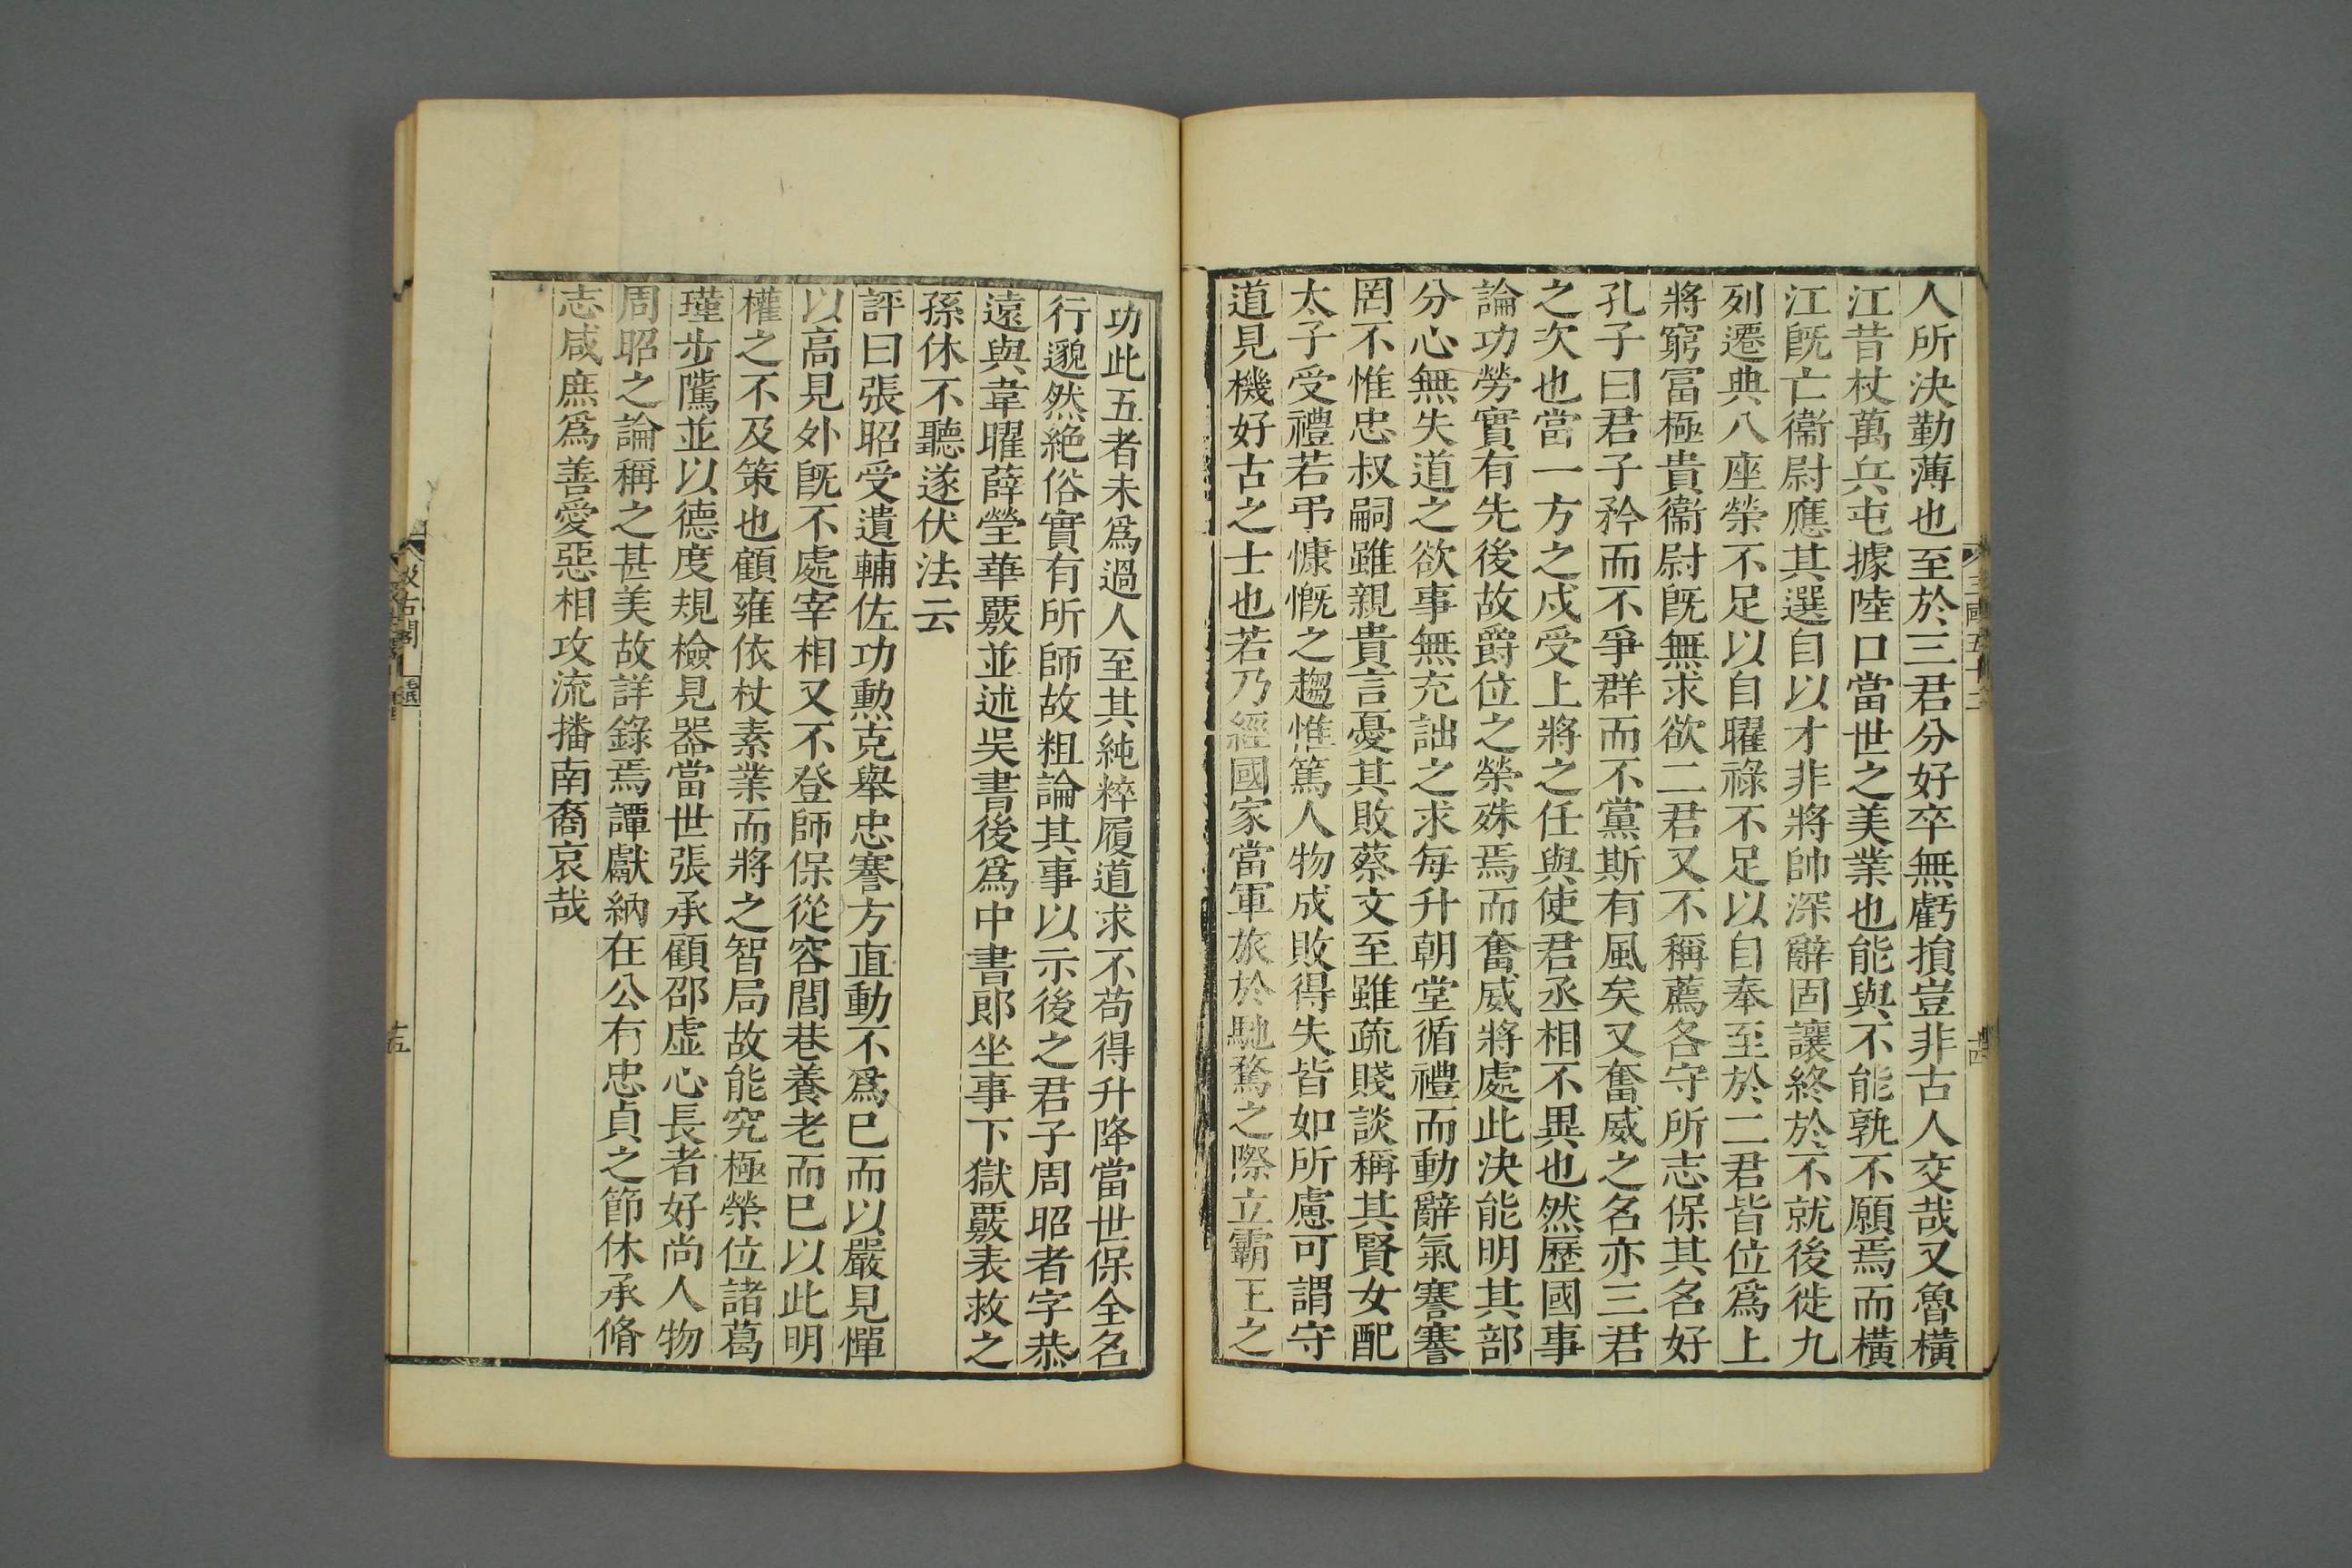 人所決勤薄也至於三君分好卒無虧損豈非古人交哉又魯橫
江昔杖萬兵屯據陸口當世之美業也能與不能孰不願焉而橫
江旣亡衞尉應其選自以才非將帥深辭固讓終於不就後徙九
列遷典八座榮不足以自曜祿不足以自奉至於二君皆位爲上
將窮富極貴衞尉旣無求欲二君又不稱薦各守所志保其名好
孔子曰君子矜而不爭群而不黨斯有風矣又奮威之名亦三君
之次也當一方之戍受上將之任與使君丞相不異也然歷國事
論功勞實有先後故爵位之榮殊焉而奮威將處此決能明其部
分心無失道之欲事無充詘之求每升朝堂循禮而動辭氣謇謇
罔不惟忠叔嗣雖親貴言憂其敗蔡文至雖疏賤談稱其賢女配
太子受禮若弔慷慨之趨惟篤人物成敗得失皆如所慮可謂守
道見機好古之士也若乃經國家當軍旅於馳騖之際立霸王之
三國五十二
十四
功此五者未爲過人至其純粹履道求不苟得升降當世保全名
行邈然絶俗實有所師故粗論其事以示後之君子周昭者字恭
遠與韋曜薛瑩華覈並述吳書後爲中書郎坐事下獄覈表救之
孫休不聽遂伏法云
評曰張昭受遺輔佐功勳克舉忠謇方直動不爲已而以嚴見憚
以高見外旣不處宰相又不登師保從容閭巷養老而已以此明
權之不及策也顧雍依杖素業而將之智局故能究極榮位諸葛
瑾步騭並以德度規檢見器當世張承顧邵虛心長者好尚人物
周昭之論稱之甚美故詳錄焉譚獻納在公有忠貞之節休承脩
志咸庶爲善愛惡相攻流播南裔哀哉
汲古閣
十五